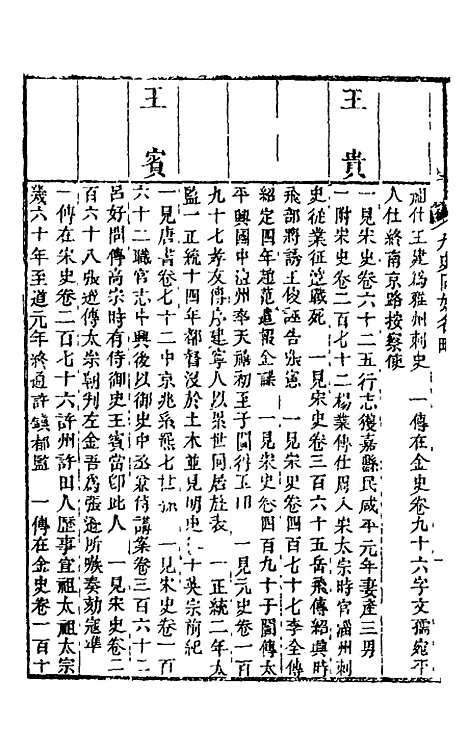 九史同姓名略
仕王建爲雅州刺史 一傳在金史卷九十六字文孺宛平
人仕終南京路按察使
王貴
一見宋史卷六十二五行志後嘉縣民咸平元年妻產三男
一附宋史卷二百七十二楊業傳仕周入宋太宗時官淄州刺
史從業征遼戰死 一見宋史卷三百六十五岳飛傳紹興時
飛部將誘王俊誣告張憲 一見宋史卷四百七十七李全傳
紹定四年趙范遣報金諜 一見宋史卷四百九十于闐傳太
平興國中澶州奉天禧初至于闐得玉印 一見元史卷一百
九十七孝友傳序建寧人以累世同居旌表 一正統二年太
監一正統十四年都督沒於土木並見明史 十英宗前紀
王賓
一見唐書卷七十二中京兆系 七世 一見宋史卷一百
六十二職官志中興後以御史中丞兼侍講案卷三百六十二
呂好問傳高宗時有侍御史王賓當卽此人 一見宋史卷二
百六十八張遜傳太宗朝判左金吾爲張遜所嗾奏劾寇準
一傳在宋史卷二百七十六許州許田人歷事宣祖太祖太宗
幾六十年至道元年終通許鎮都監 一傳在金史卷一百十